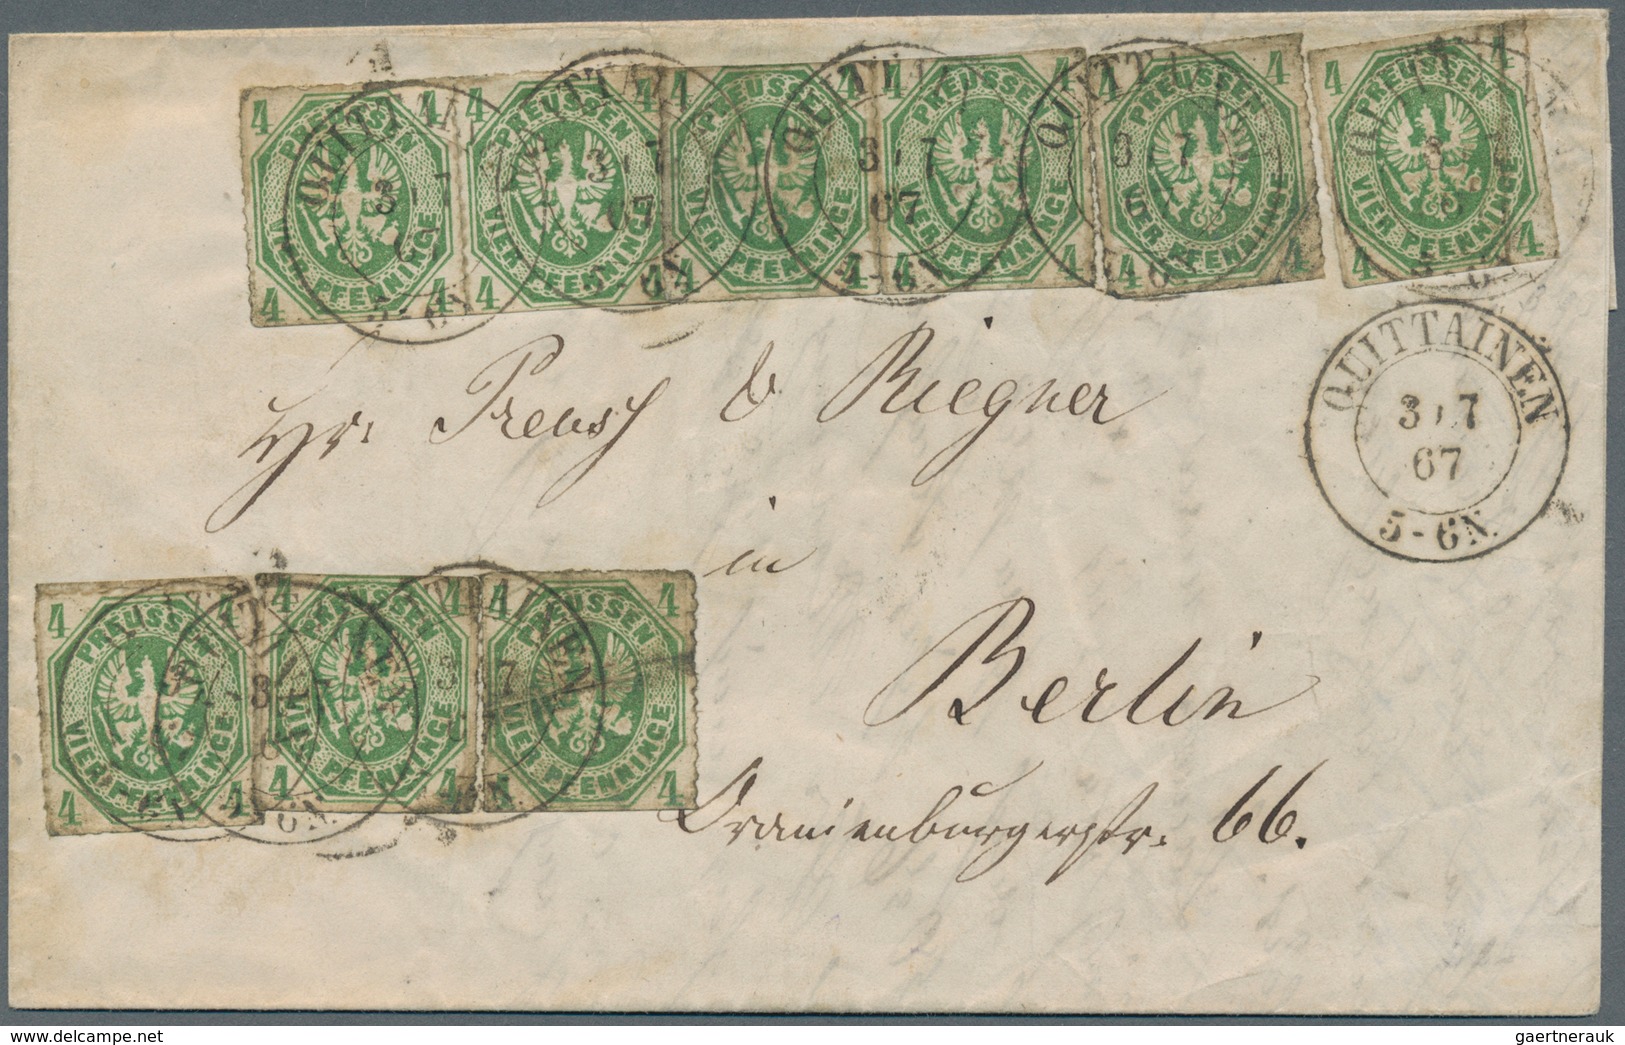 4 4 4 4 4 4 4 4 4 4 4 4
PREUSSEN PREUSSEN PREUSSEN PREUSSEN PREUSSEN PREUSSEN
VIER PFENNINGE VIER PFENNINGE VIER PFENNINGE VIER PFENNINGE VIER PFENNINGE VIER PFENNINGE
4 4 4 4 4 4 4 4 4 4 4 4
QUITTAINEN
3 7
67
5-6N.
Hr. Preusch & Riegner
in
Berlin
Oranienburgerstr. 66.
4 4 4 4 4
PREUSSEN PREUSSEN PREUSSEN
VIER PFENNINGE VIER PFENNINGE VIER PFENNINGE
4 4 4 4 4
gaertnerauk